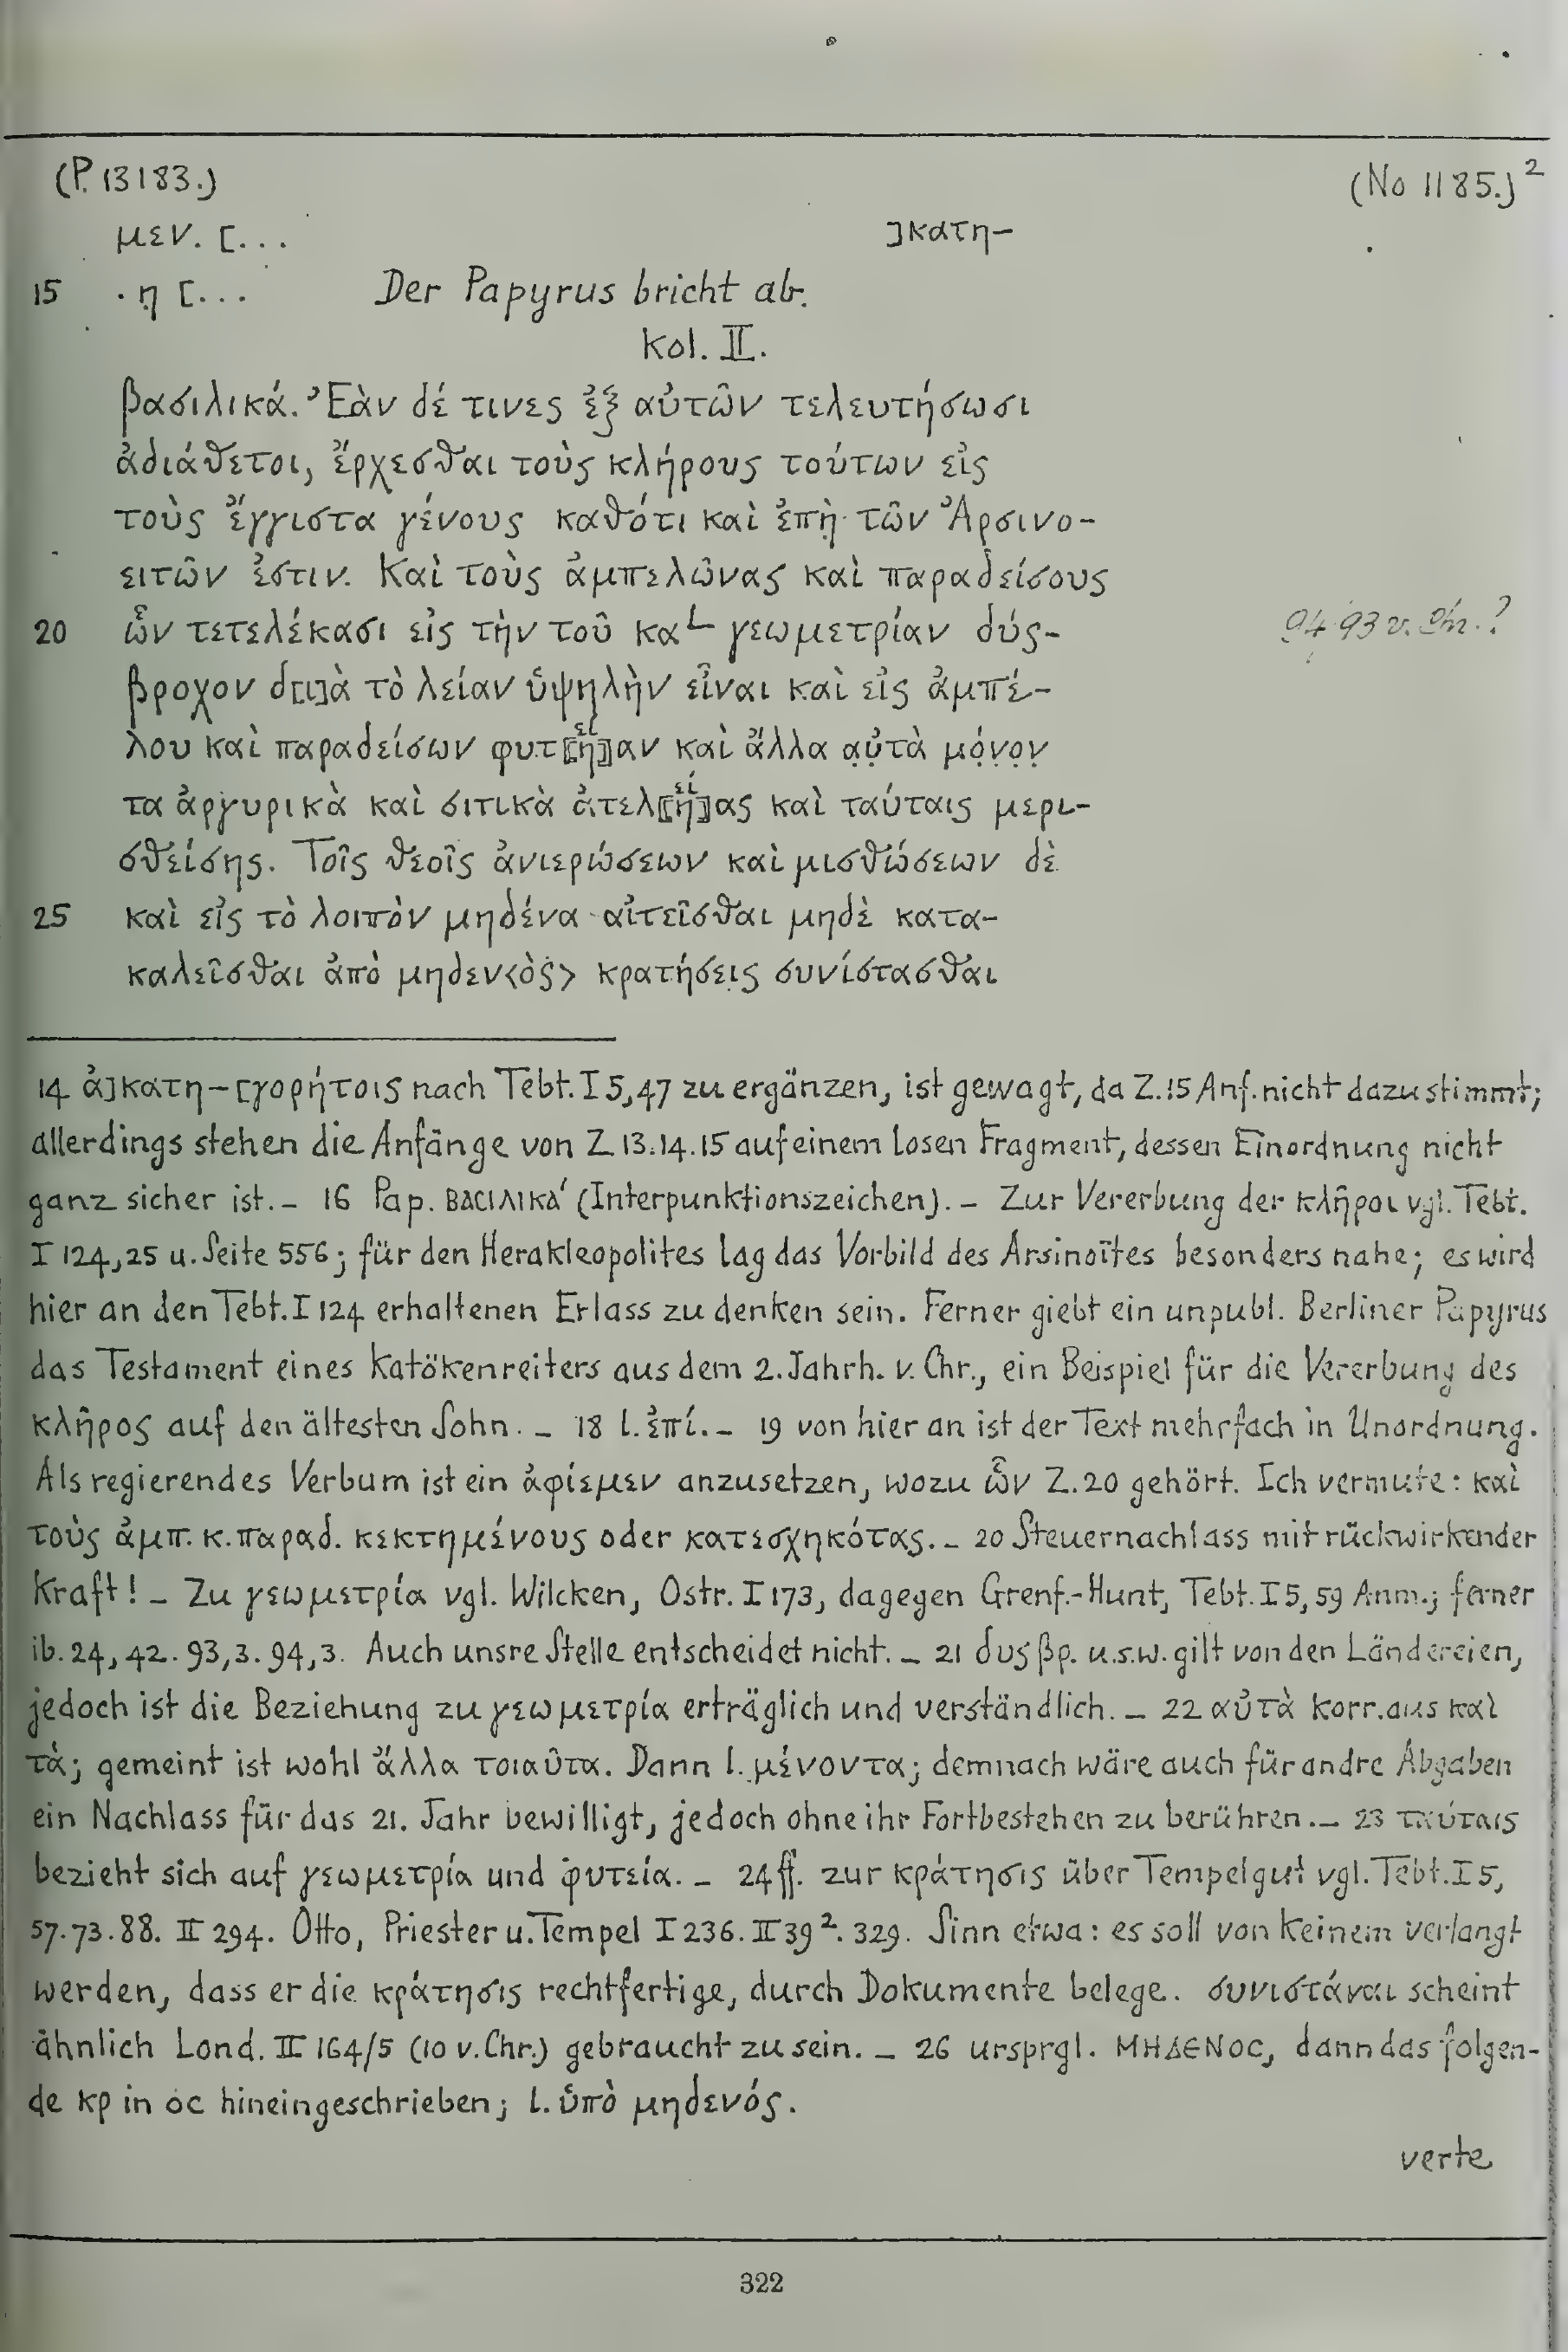 (P. 13183.) (No 1185.)²
μεν. [... ]κατη-
15 . η [... Der Papyrus bricht ab.
Kol. II.
βασιλικά. Ἐὰν δέ τινες ἐξ αὐτῶν τελευτήσωσι
ἀδιάθετοι, ἔρχεσθαι τοὺς κλήρους τούτων εἰς
τοὺς ἔγγιστα γένους καθότι καὶ ἐπὴ̣ τῶν Ἀρσινο-
ειτῶν ἐστιν. Καὶ τοὺς ἀμπελῶνας καὶ παραδείσους
20 ὧν τετελέκασι εἰς τὴν τοῦ κα𐅹 γεωμετρίαν δύς-
94/93 v. Chr.?
βροχον δ[ι]ὰ τὸ λείαν ὑψηλὴν εἶναι καὶ εἰς ἀμπέ-
λου καὶ παραδείσων φυτ⟦ή⟧`εί´αν καὶ ἄλλα α̣ὐ̣τὰ μό̣ν̣ο̣ν̣
τα ἀργυρικὰ καὶ σιτικὰ ἀτελ⟦ή⟧`εί´ας καὶ ταύταις μερι-
σθείσης. Τοῖς θεοῖς ἀνιερώσεων καὶ μισθώσεων δὲ
25 καὶ εἰς τὸ λοιπὸν μηδένα αἰτεῖσθαι μηδὲ κατα-
καλεῖσθαι ἀπὸ μηδεν<ὸς> κρατήσε̣ις συνίστασθαι
14 ἀ]κατη-[γορήτοις nach Tebt. I 5,47 zu ergänzen, ist gewagt, da Z. 15 Anf. nicht dazu stimmt;
allerdings stehen die Anfänge von Z. 13. 14. 15 auf einem losen Fragment, dessen Einordnung nicht
ganz sicher ist. – 16 Pap. ΒΑϹΙΛΙΚΑ′ (Interpunktionszeichen). – Zur Vererbung der κλῆροι vgl. Tebt.
I 124,25 u. Seite 556; für den Herakleopolites lag das Vorbild des Arsinoïtes besonders nahe; es wird
hier an den Tebt. I 124 erhaltenen Erlass zu denken sein. Ferner giebt ein unpubl. Berliner Papyrus
das Testament eines Katökenreiters aus dem 2. Jahrh. v. Chr., ein Beispiel für die Vererbung des
κλῆρος auf den ältesten Sohn. – 18 l. ἐπί. – 19 von hier an ist der Text mehrfach in Unordnung.
Als regierendes Verbum ist ein ἀφίεμεν anzusetzen, wozu ὧν Z. 20 gehört. Ich vermute: καὶ
τοὺς ἀμπ. κ. παραδ. κεκτημένους oder κατεσχηκότας. – 20 Steuernachlass mit rückwirkender
Kraft! – Zu γεωμετρία vgl. Wilcken, Ostr. I 173, dagegen Grenf.-Hunt, Tebt. I 5, 59 Anm.; ferner
ib. 24, 42. 93,3. 94,3. Auch unsre Stelle entscheidet nicht. – 21 δυςβρ. u.s.w. gilt von den Ländereien,
jedoch ist die Beziehung zu γεωμετρία erträglich und verständlich. – 22 αὐτὰ korr. aus καὶ
τὰ; gemeint ist wohl ἄλλα τοιαῦτα. Dann l. μένοντα; demnach wäre auch für andre Abgaben
ein Nachlass für das 21. Jahr bewilligt, jedoch ohne ihr Fortbestehen zu berühren. – 23 ταύταις
bezieht sich auf γεωμετρία und φυτεία. – 24 ff. zur κράτησις über Tempelgut vgl. Tebt. I 5,
57. 73. 88. II 294. Otto, Priester u. Tempel I 236. II 39². 329. Sinn etwa: es soll von keinem verlangt
werden, dass er die κράτησις rechtfertige, durch Dokumente belege. συνιστάναι scheint
ähnlich Lond. II 164/5 (10 v. Chr.) gebraucht zu sein. – 26 ursprgl. ΜΗΔΕΝΟϹ, dann das folgen-
de κρ in οϲ hineingeschrieben; l. ὑπὸ μηδενός.
verte
322